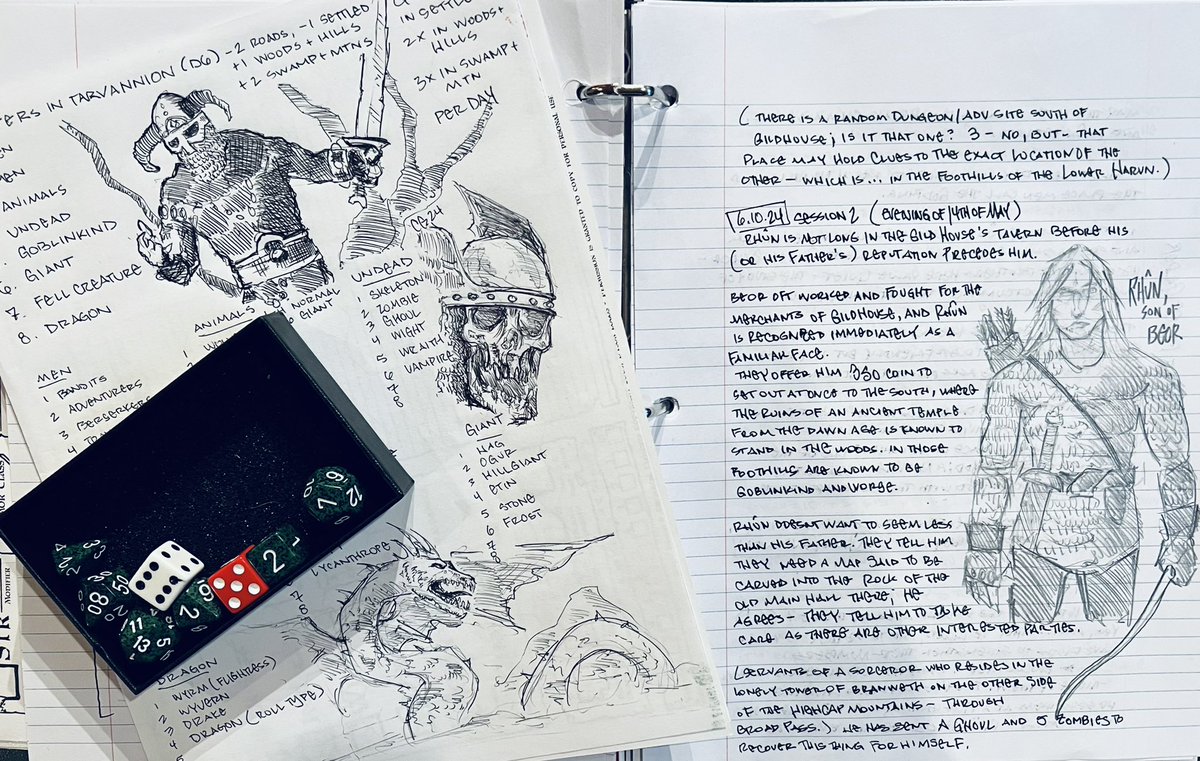 ERS IN TARVANNION (D6) -2 ROADS, -1 SETTLED
+1 WOODS + HILLS
+2 SWAMP + MTNS
IN SETTLE
2X IN WOODS +
HILLS
3X IN SWAMP +
MTN
PER DAY
MEN
ANIMALS
UNDEAD
GOBLINKIND
6. GIANT
7. FELL CREATURE
8. DRAGON
MEN
1 BANDITS
2 ADVENTURERS
3 BERSERKERS
4
ANIMALS
1
NORMAL
GIANT
UNDEAD
1 SKELETON
2 ZOMBIE
3 GHOUL
4 WIGHT
5 WRAITH
6 VAMPIRE
7
8
GIANT
1 HAG
2 OGUR
3 HILLGIANT
4 ETIN
5 STONE
6 FROST
LYCANTHROPE
7
8
DRAGON
1 WYRM (FLIGHTLESS)
2 WYVERN
3 DRAKE
4 DRAGON (ROLL TYPE)
5
(THERE IS A RANDOM DUNGEON/ADV SITE SOUTH OF
GILDHOUSE; IS IT THAT ONE? 3 - NO, BUT - THAT
PLACE MAY HOLD CLUES TO THE EXACT LOCATION OF THE
OTHER - WHICH IS... IN THE FOOTHILLS OF THE LOWAR HARUN.)
6.10.24 SESSION 2 (EVENING OF 14TH OF MAY)
RHÛN IS NOT LONG IN THE GILD HOUSE'S TAVERN BEFORE HIS
(OR HIS FATHER'S) REPUTATION PRECEDES HIM.
BEOR OFT WORKED AND FOUGHT FOR THE
MERCHANTS OF GILDHOUSE, AND RHÛN
IS RECOGNIZED IMMEDIATELY AS A
FAMILIAR FACE.
THEY OFFER HIM 350 COIN TO
SET OUT AT ONCE TO THE SOUTH, WHERE
THE RUINS OF AN ANCIENT TEMPLE
FROM THE DAWN AGE IS KNOWN TO
STAND IN THE WOODS. IN THOSE
FOOTHILLS ARE KNOWN TO BE
GOBLINKIND AND WORSE.
RHÛN, SON OF BEOR
RHÛN DOESNT WANT TO SEEM LESS
THAN HIS FATHER. THEY TELL HIM
THEY NEED A MAP SAID TO BE
CARVED INTO THE ROCK OF THE
OLD MAIN HALL THERE; HE
AGREES - THEY TELL HIM TO TAKE
CARE AS THERE ARE OTHER INTERESTED PARTIES.
(SERVANTS OF A SORCEROR WHO RESIDES IN THE
LONELY TOWER OF BRANWETH ON THE OTHER SIDE
OF THE HIGHCAP MOUNTAINS - THROUGH
BROAD PASS.) HE HAS SENT A GHOUL AND 5 ZOMBIES TO
RECOVER THIS THING FOR HIMSELF.